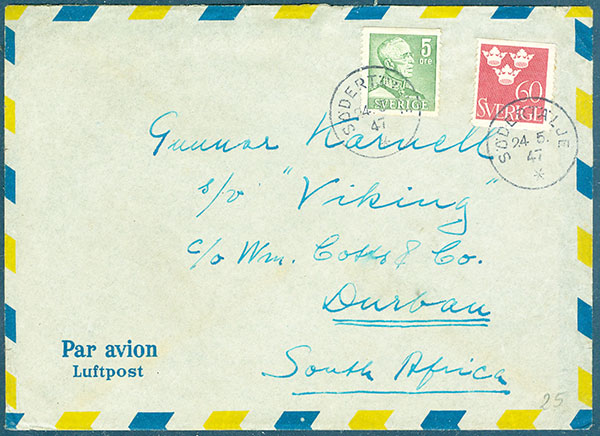 5
öre
SVERIGE
60
SVERIGE
SÖDERTÄLJE
24 5.
47
SÖDERTÄLJE
24 5.
47
*
Gunnar Karnell
s/v "Viking"
c/o Wm. Cotts & Co.
Durban
South Africa
Par avion
Luftpost
25